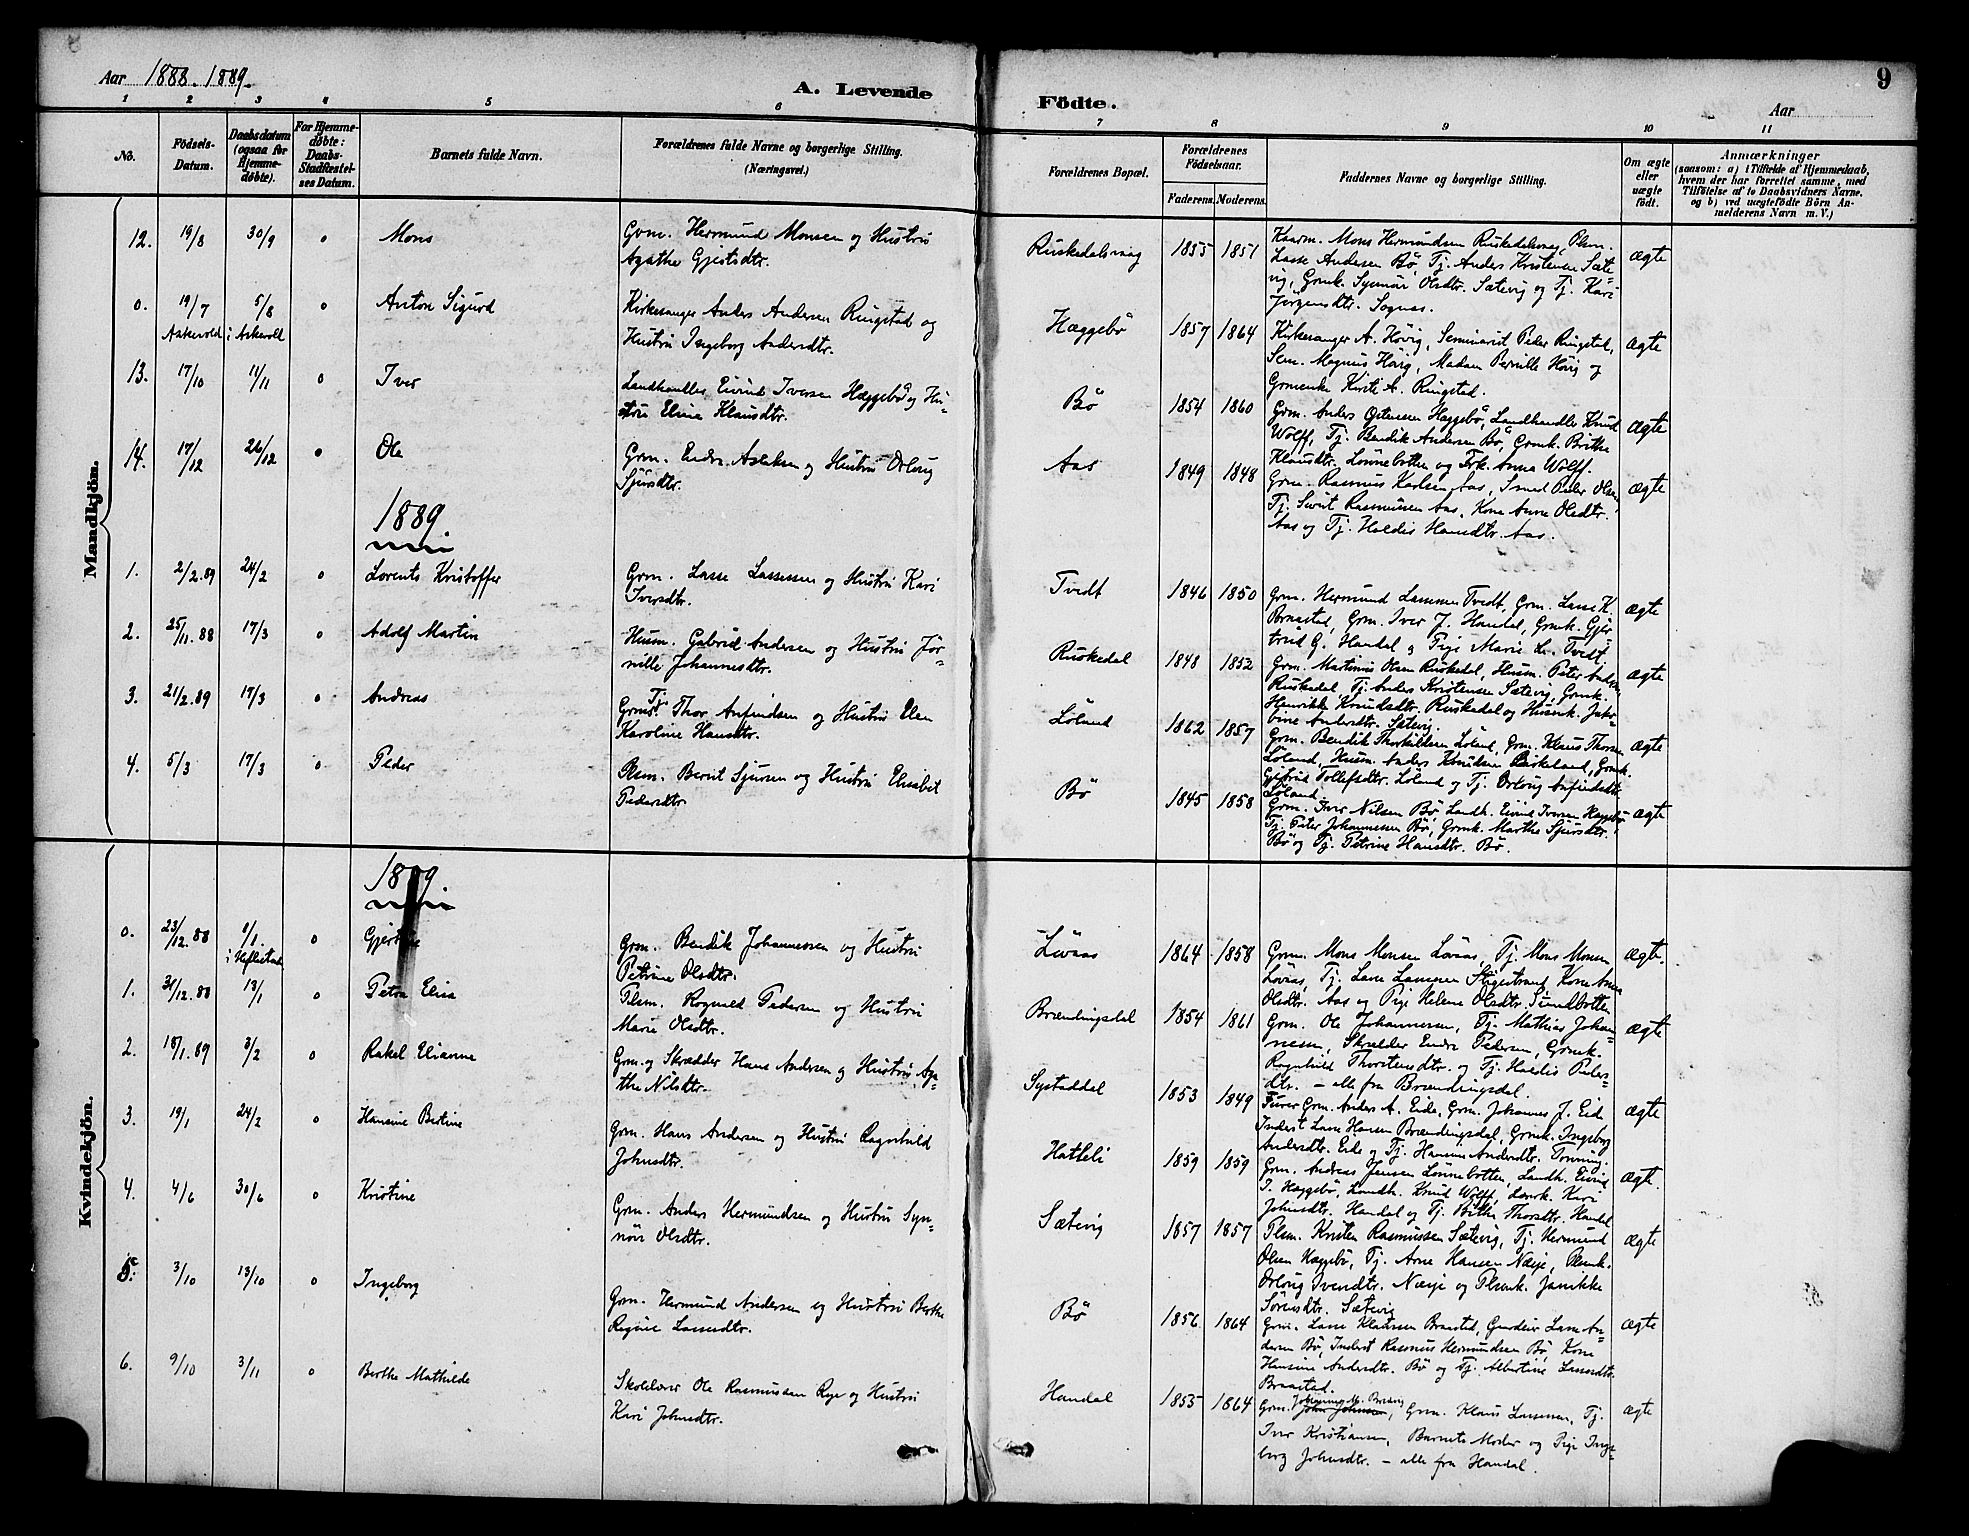 Aar 1888-1889.
A. Levende
Födte.
Aar
9
1 2 3 4 5 6 7 8 9 10 11
No.
Födsels-Datum.
Daabsdatum (ogsaa for Hjemmedöbte).
For Hjemmedöbte: Daabs-Stadfæstelses Datum.
Barnets fulde Navn.
Forældrenes fulde Navne og borgerlige Stilling.
(Næringsvei.)
Forældrenes Bopæl.
Forældrenes Födselsaar.
Faderens. Moderens.
Faddernes Navne og borgerlige Stilling.
Om ægte eller uægte födt.
Anmærkninger
(saasom: a) i Tilfælde af Hjemmedaab,
hvem der har forrettet samme, med
Tilföielse af to Daabsvidners Navne.
og b) ved uægtefödte Börn Anmelderens Navn m. V.)
Mandkjön.
12. 19/8 30/9 o Mons
Grm. Hermund Monsen og Hustru
Agathe Gjertsdtr.
Ruskedalsvaag 1855 1851
Kaarm. Mons Hermundsen Ruskedalsvaag, Plsm.
Lasse Andersen Bö, Tj. Anders Kristensen Sæte-
vig, Grmk. Synnöv Olsdtr. Sætevig og Tj. Kari
Jörgensdtr. Sognes.
ægte
0. 19/7 Askevold 5/8 i Askevold o Anton Sigurd
Kirkesanger Anders Andersen Ringstad og
Hustru Ingeborg Andersdtr.
Hæggebö 1857 1864
Kirkesanger A. Hövig, Seminarist Peder Ringstad,
Sem. Magnus Hövig, Madam Pernille Hövig og
Grmenke Kirsti A. Ringstad.
ægte
13. 17/10 11/11 o Iver
Landhandler Eivind Iversen Hæggebö og Hu-
stru Eline Klausdtr.
Bö 1854 1860
Grm. Anders Ostensen Hæggebö, Landhandler Knud
Wolff, Tj. Bendik Andersen Bö, Grmk. Brithe
Klausdtr. Lönnebotten og Frk. Anna Wolff.
ægte
14. 17/12 26/12 o Ole
Grm. Endre Aslaksen og Hustru Orloug
Sjursdtr.
Aas 1849 1848
Grm. Rasmus Karlsen Aas, Smed Peder Olsen,
Tj. Sivert Rasmussen Aas, Kone Anne Olsdtr.
Aas og Tj. Haldis Hansdtr. Aas.
ægte
1889.
1. 2/2.89 24/2 o Lorents Kristoffer
Grm. Lasse Lassesen og Hustru Kari
Iversdtr.
Tvedt 1846 1850
Grm. Hermund Lassesen Tvedt, Grm. Lasse K.
Braastad, Grm. Iver J. Handal, Grmk. Gjer-
trud G. Handal og Pige Marie L. Tvedt.
ægte
2. 25/11.88 17/3 o Adolf Martin
Husm. Gabriel Andersen og Hustru Jör-
nille Johannesdtr.
Ruskedal 1848 1852
Grm. Martinus Olsen Ruskedal, Husm. Peter Andersen
Ruskedal, Tj. Anders Kristensen Sætevig, Grmk.
Henrikke Knudsdtr. Ruskedal og Husmk. Jako-
bine Andersdtr. Sætevig
ægte
3. 21/2.89 17/3 o Andreas
Tj. Thor Anfindsen og Hustru Elen
Karoline Hansdtr.
Löland 1862 1857
Grm. Bendik Thorkildsen Löland, Grm. Klaus Thorsen
Löland, Husm. Anders Knudsen Birkeland, Grmk.
Gjertrud Tollefsdtr. Löland og Tj. Orloug Anfindsdtr.
Löland.
ægte
4. 5/3 17/3 o Peder
Plsm. Bernt Sjursen og Hustru Elisabet
Pedersdtr.
Bö 1845 1858
Grm. Iver Nilsen Bö, Landh. Eivind Iversen Hæggebö
Tj. Peter Johannessen Bö, Grmk. Marthe Sjursdtr.
Bö og Tj. Petrine Hansdtr. Bö.
ægte
Kvindekjön.
1889.
0. 23/12.88 1/1. o
Grm. Bendik Johannessen og Hustru
Petrine Olsdtr.
Lövaas 1864 1858
Grm. Mons Monsen Lövaas, Tj. Mons Monsen
Lövaas, Tj. Lasse Lassesen Stigestrand, Kone Anna
Olsdtr. Aas og Pige Helene Olsdtr. Sundbotten
ægte.
1. 31/12.88 13/1 o Petra Elisa
Plsm. Rognald Pedersen og Hustru
Marie Olsdtr.
Brændingsdal 1854 1861
Grm. Ole Johannessen, Tj. Mathias Johan-
nessen, Skrædder Endre Pedersen, Grmk.
Ragnhild Thorstensdtr. og Tj. Haldis Peders-
dtr. – alle fra Brændingsdal.
ægte
2. 18/1.89 3/2 o Rakel Elianne
Grm. og Skrædder Hans Andersen og Hustru Aga-
the Nilsdtr.
Systaddal 1853 1849
Furer Grm. Anders A. Eide, Grm. Johannes J. Eide
Inderst Lasse Hansen Brændingsdal, Grmk. Ingeborg
Andersdtr. Eide og Tj. Hansine Andersdtr. Tonning.
ægte
3. 19/1 24/2 o Hansine Bertine
Grm. Hans Andersen og Hustru Ragnhild
Johnsdtr.
Hatleli 1859 1859
Grm. Andreas Jensen Lönnebotten, Landh. Eivind
I. Hæggebö, Landh. Knud Wolff, Lærk. Kari
Johnsdtr. Handal og Tj. Brithe Thorsdtr. Handal
ægte.
4. 4/6 30/6 o Kristine
Grm. Anders Hermundsen og Hustru Syn-
növ Olsdtr.
Sætevig 1857 1857
Plsm. Kristen Rasmussen Sætevig, Tj. Hermund
Olsen Hæggebö, Tj. Arne Hansen Næsje, Plsmk.
Orloug Iversdtr. Næsje og Plsmk. Jannikke
Sörensdtr. Sætevig
ægte
5. 3/10 13/10 o Ingeborg
Grm. Hermund Andersen og Hustru Berthe
Regine Lassesdtr.
Bö 1856 1864
Grm. Lasse Klaussen Braastad, Gardeir Lasse An-
dersen Bö, Inderst Rasmus Hermundsen Bö, Kone
Hansine Andersdtr. Bö og Tj. Albertine Lassesdtr.
Braastad.
ægte
6. 9/10 3/11 o Berthe Mathilde
Skolelærer Ole Rasmussen Rye og Hustru
Kari Johnsdtr.
Handal 1855 1864
Grm. John Johnsen, Grm. Klaus Lassesen, Tj.
Iver Kristiansen, Barnets Moder og Pige Inge-
borg Johnsdtr. – alle fra Handal.
ægte